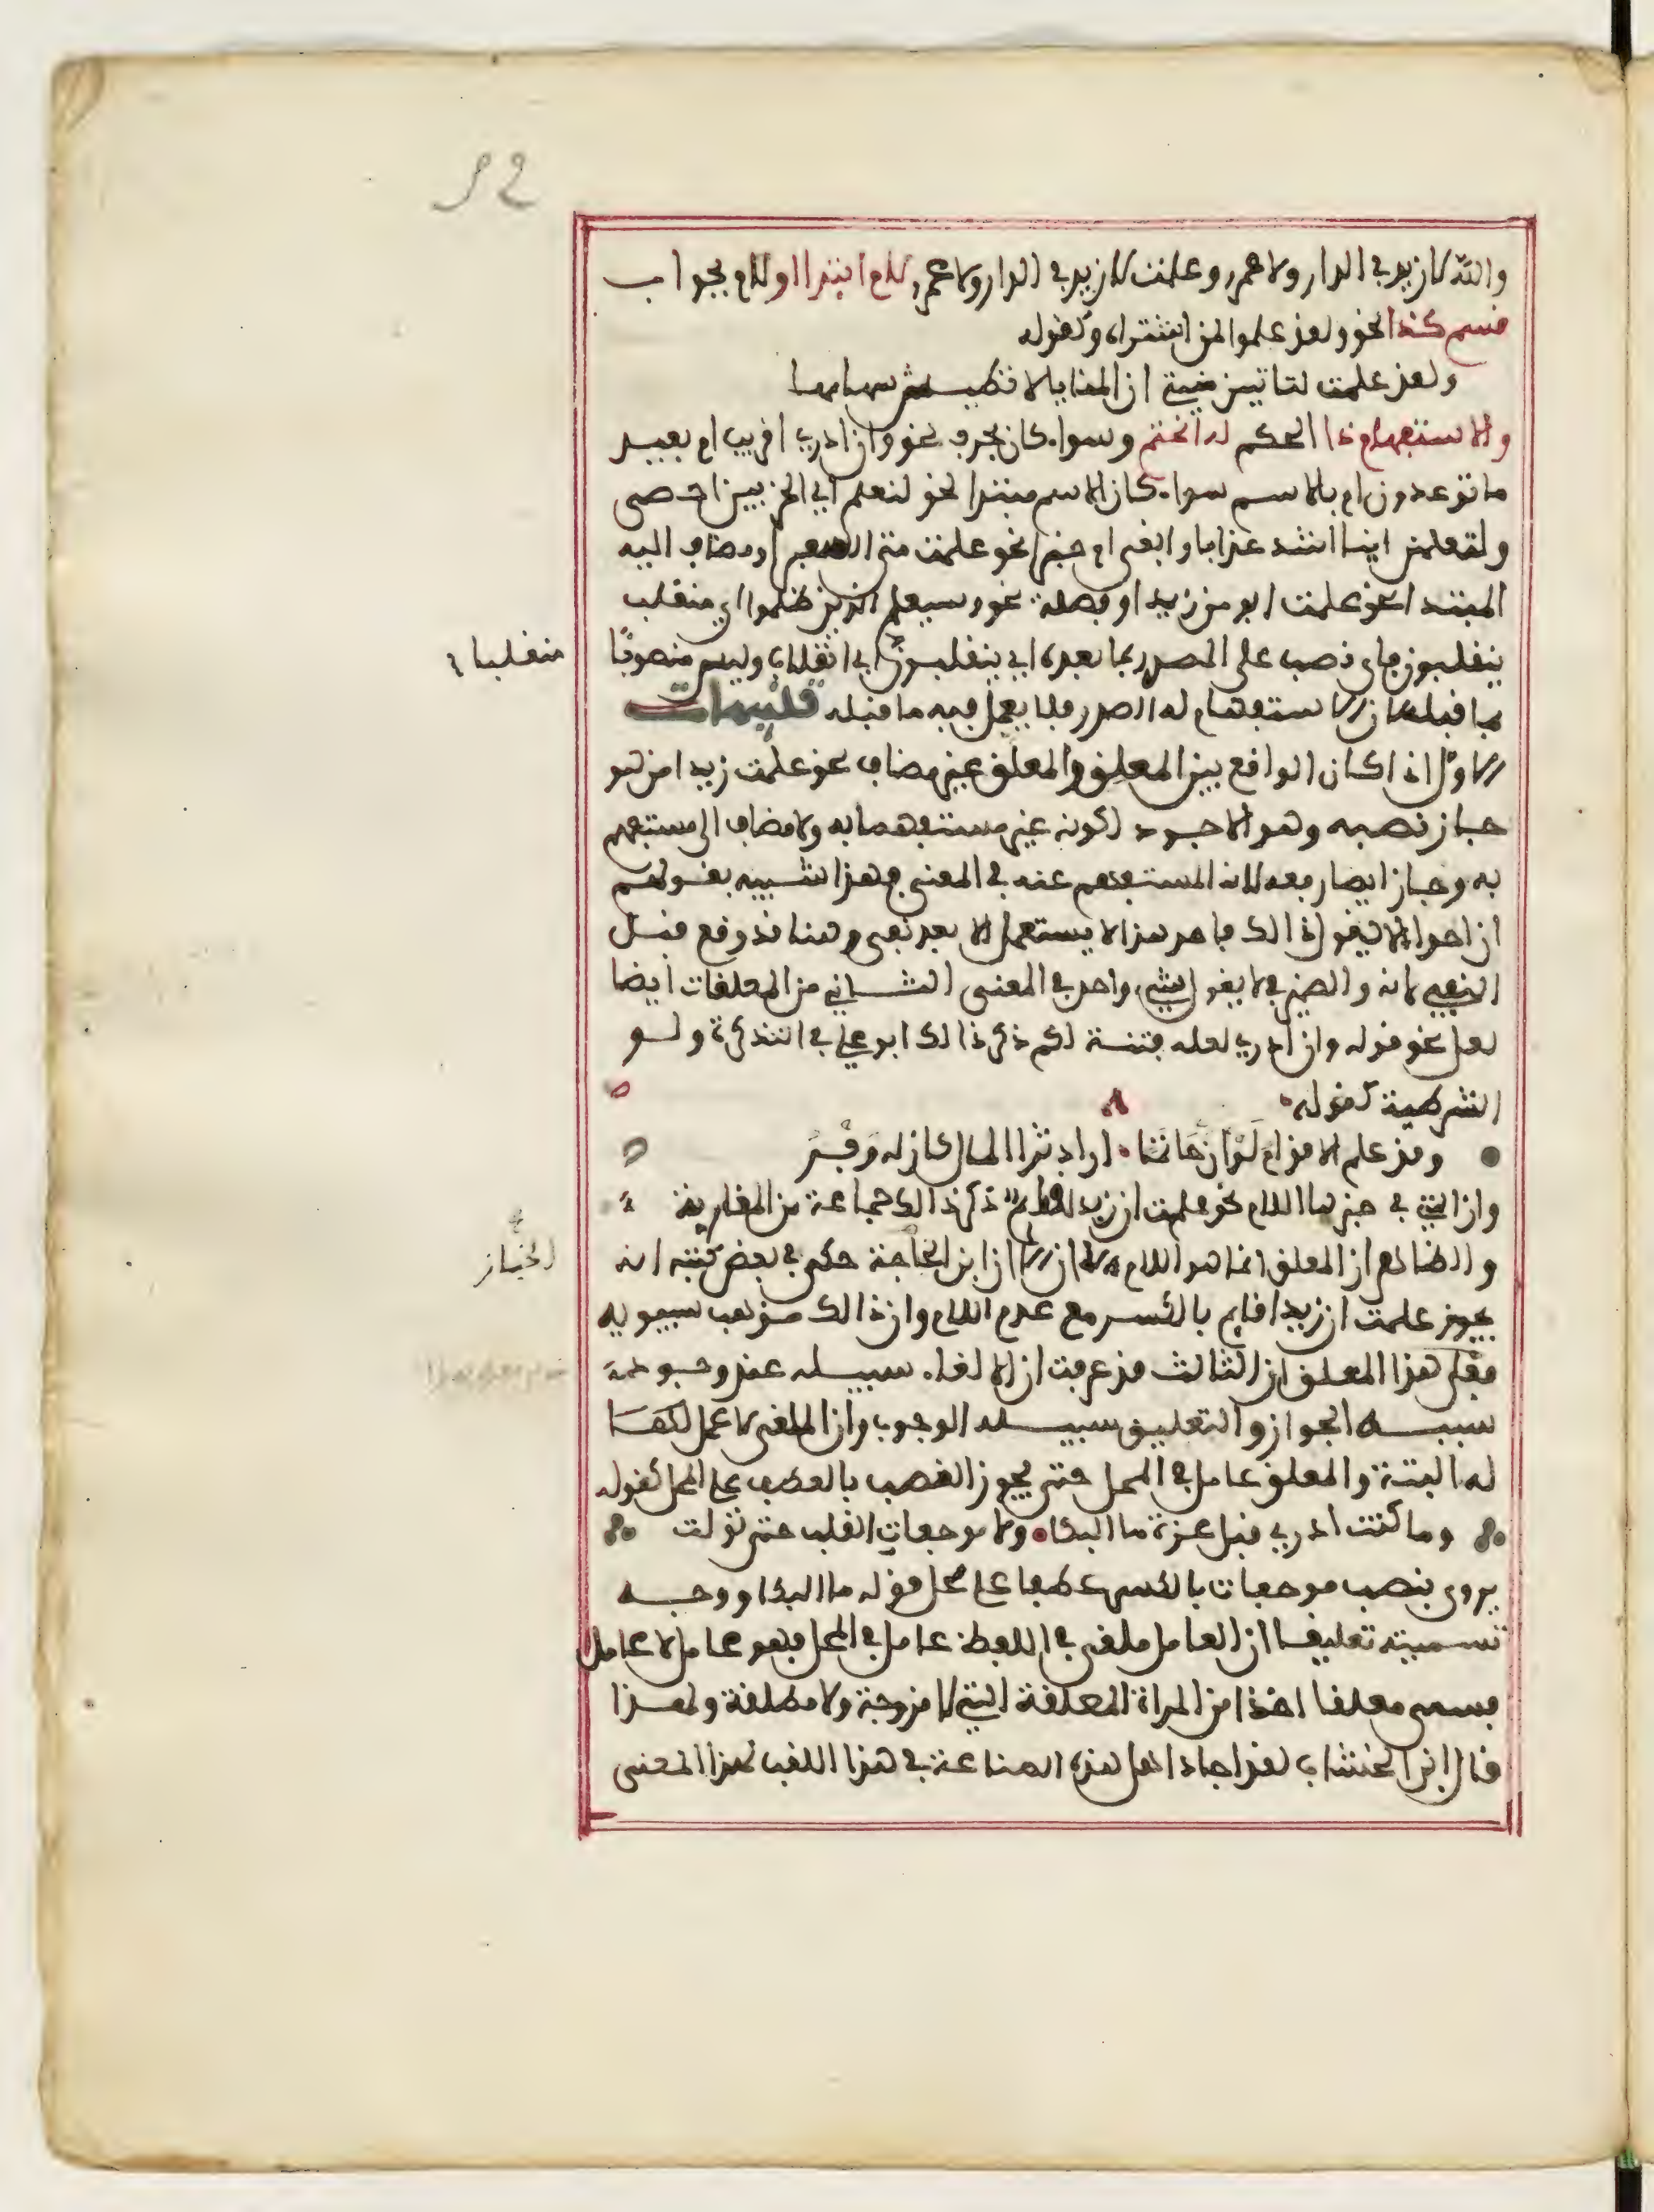 والله لا زيد في الدار ولا عمرو وعلمت لا زيد في الدار ولا عمرو لام ابتدا او لام جواب
قسم كذا نحو ولقد علموا لمن اشتراه وكقوله
ولقد علمت لتاتين منيتي ان المنايا لا تطيش سهامها
والاستفهام ذا الحكم له انحتم وسواء كان بحرف نحو وان ادري اقريب ام بعيد
ما توعدون ام بالاسم سواء كان الاسم مبتدا نحو لنعلم اي الحزبين احصى
ولتعلمن اينا اشد عذابا وابقى ام خبرا نحو علمت متى السفر او مضاف اليه
المبتدا نحو علمت ابو من زيد او فضلة نحو وسيعلم الذين ظلموا اي منقلب
ينقلبون فاي نصب على المصدر بما بعده اي ينقلبون اي انقلاب وليس منصوبا
منقلبا
بما قبله لان الاستفهام له الصدر فلا يعمل فيه ما قبله تنبيهات
الاول اذا كان الواقع بين المعلق والمعلق غير مضاف نحو علمت زيدا من هو
جاز نصبه وهو الاجود لكونه غير مستفهما به ولا مضاف الى مستفهم
به وجاز ايضا رفعه لانه المستفهم عنه في المعنى وهذا شبيه بقولهم
ان احدا لا يقول ذالك فاحد هذا لا يستعمل الا بعد نفي وهنا قد وقع قبل
النفي لانه والضمير في لا يقول شيء واحد في المعنى الثاني من المعلقات ايضا
لعل نحو قوله وان ادري لعله فتنة لكم ذكر ذالك ابو علي في التذكرة ولو
الشرطية كقوله
وقد علم الاقوام لو ان حاتما ارادَ ثرا المال كان له وَفْرُ
وان التي في خبرها اللام نحو علمت ان زيدا لقايم ذكر ذالك جماعة من المغاربة
والظاهر ان المعلق انما هو اللام لا ان الا ان ابن الخاجة حكى في بعض كتبه انه
الخباز
يجوز علمت ان زيدا قايم بالكسر مع عدم اللام وان ذالك مذهب سيبويه
فعلى هذا المعلق ان الثالث قد عرفت ان الالغاء سبيله عند وجود
سببه الجواز والتعليق سبيله الوجوب وان الملغى لا عمل
له البتة والمعلق عامل في المحل حتى يجوز النصب بالعطف على المحل كقوله
وما كنت ادري قبل عزة ما البكاء ولا موجعات القلب حتى تولت
يروى بنصب موجعات بالكسر عطفا على محل قوله ما البكا ووجه
تسميته تعليقا ان العامل ملغى في اللفظ عامل في المحل فهو عامل لا عامل
فسمي معلقا اخذا من المراة المعلقة التي لا مزوجة ولا مطلقة ولهذا
قال ابن الخشاب لقد اجاد اهل هذه الصناعة في هذا اللقب لهذا المعنى